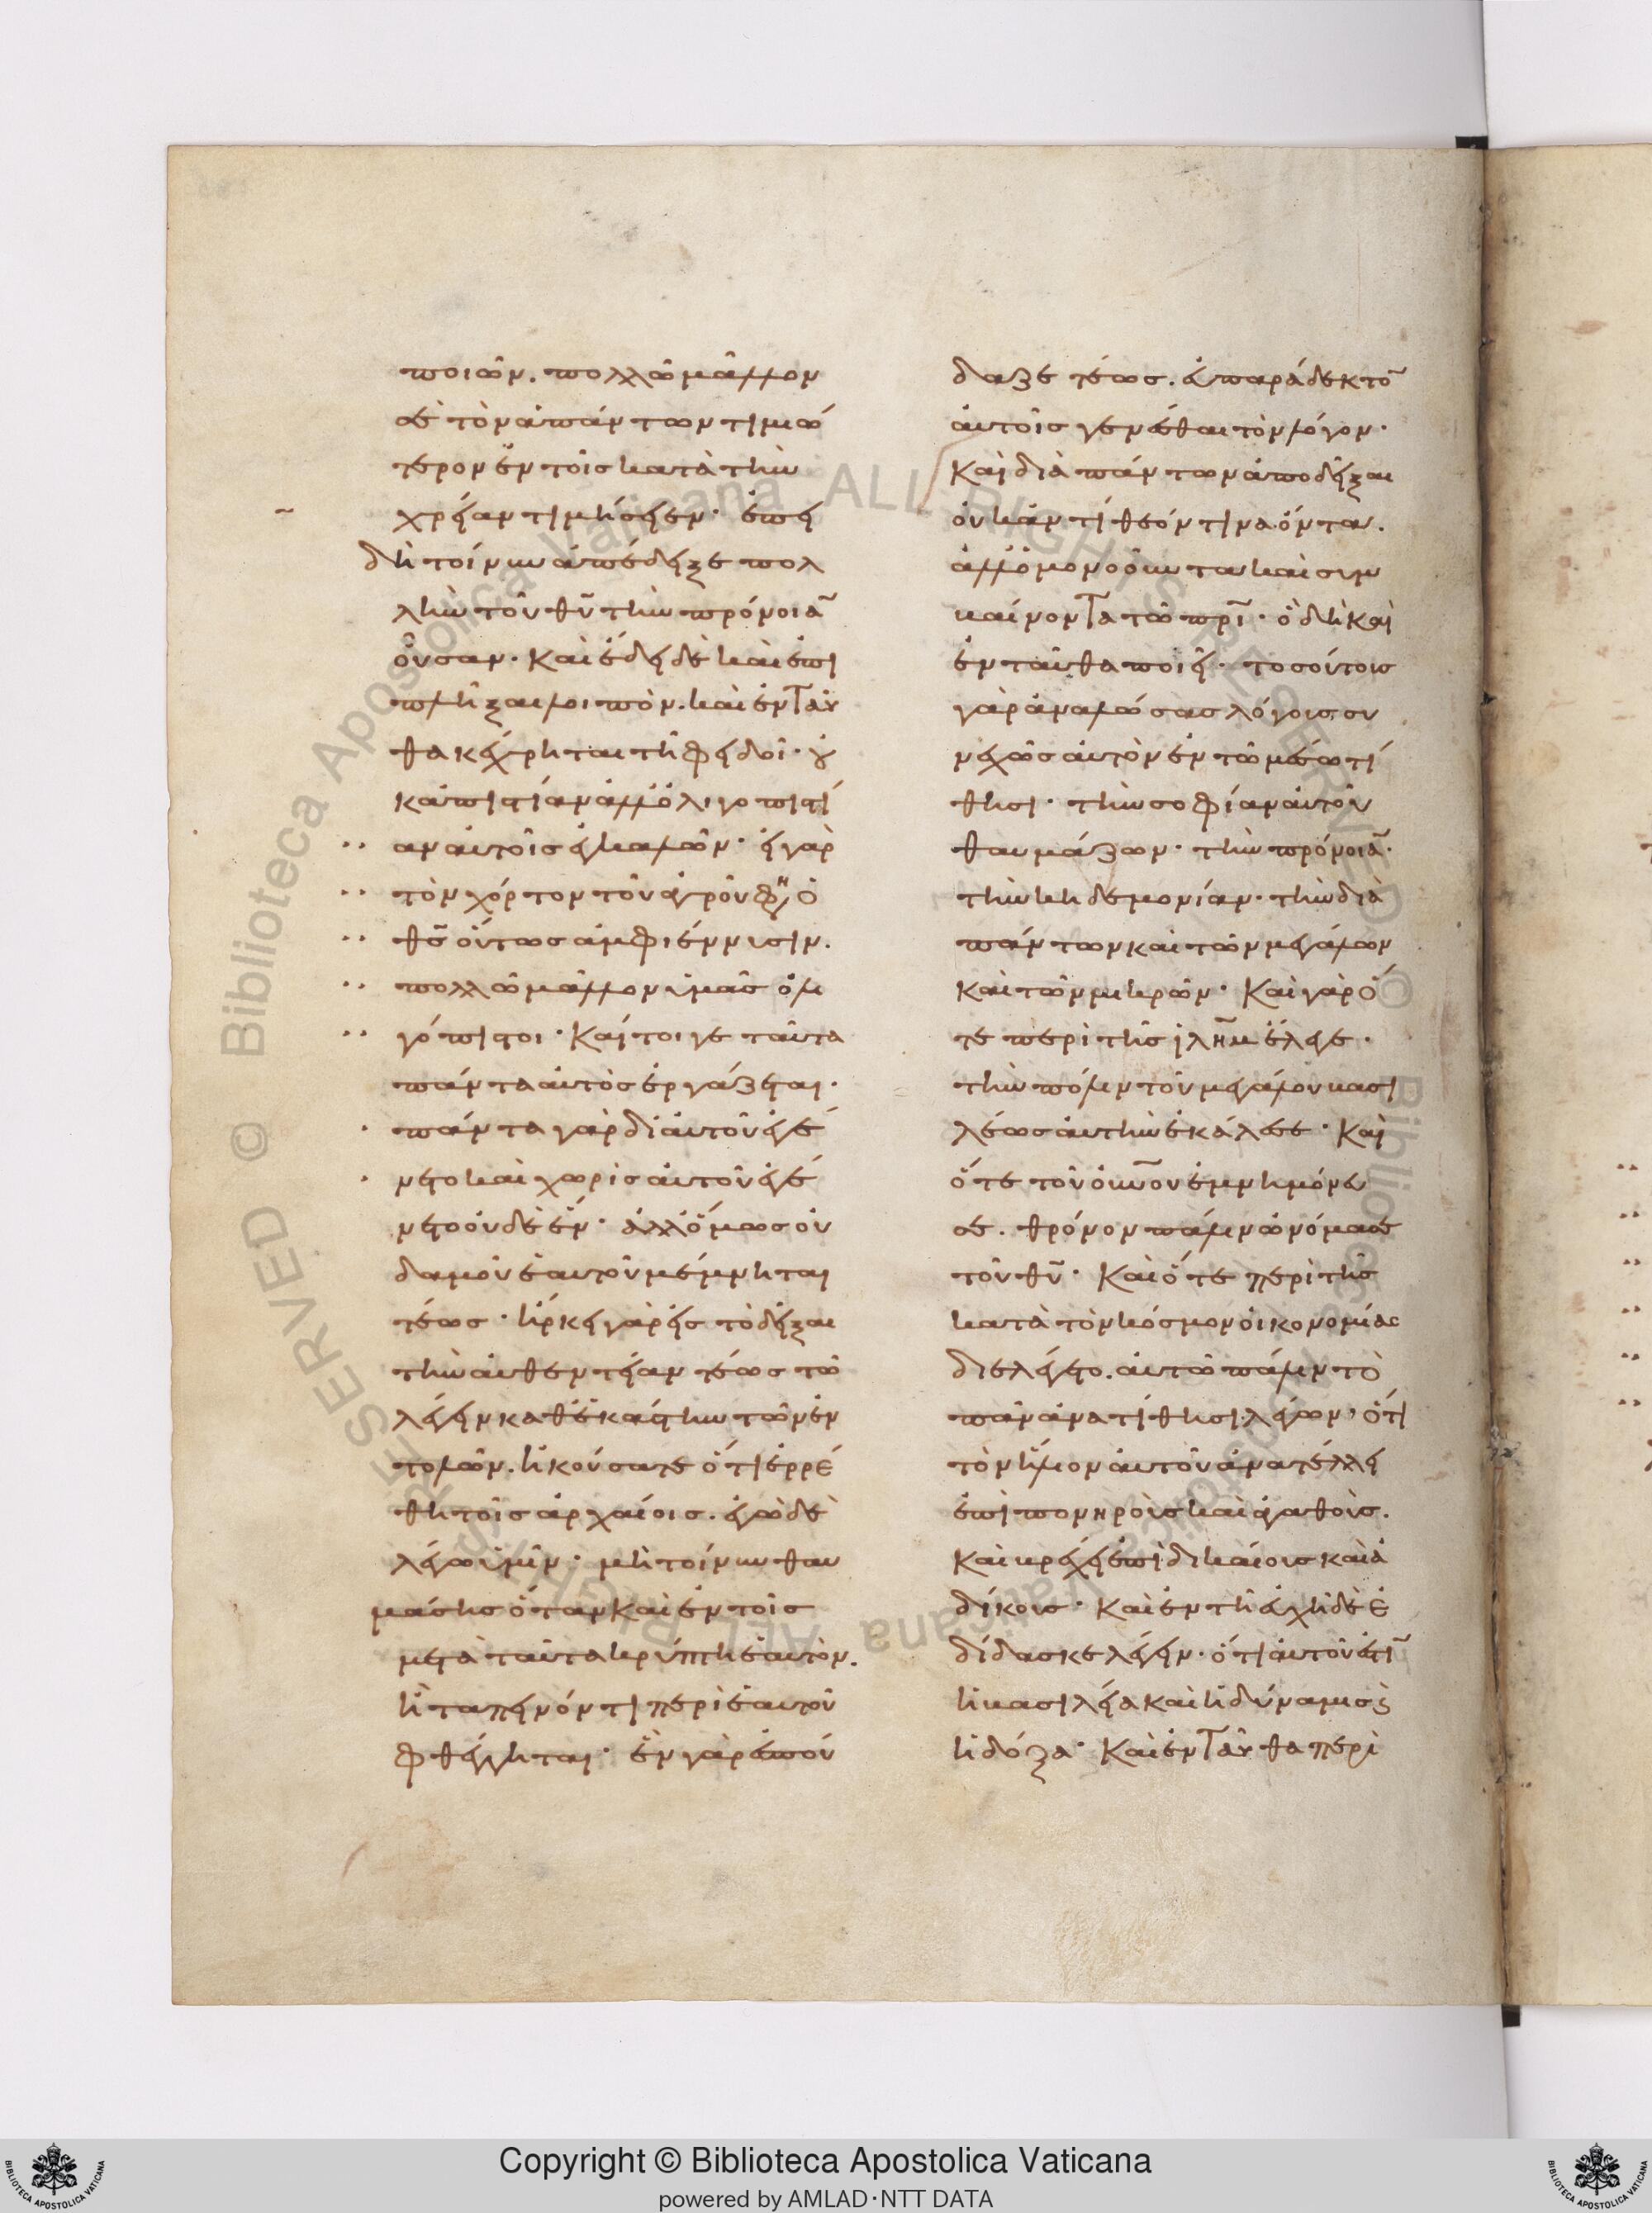 ποιῶν. πολλῶ μᾶλλον
σὲ τὸν ἁπάντων τιμιώ
τερον ἐν τοῖς κατὰ τὴν
χρείαν τιμήσειεν· ἐπει
δὴ τοίνυν ἀπέδειξε πολ
λὴν τοῦ θῦ τὴν πρόνοιᾱ
οὖσαν· Καὶ ἔδει δὲ καὶ ἐπι
πλῆξαι λοιπὸν. καὶ ἐνταῦ
θα κέχρηται τῆ φειδοῖ· οὐ
κ ἀπιστίαν ἀλλ' ὀλιγοπιστί
αν αὐτοῖς ἐγκαλῶν· εἰ γὰρ
τὸν χόρτον τοῦ ἀγροῦ φη ὁ
θς οὕτως ἀμφιέννυσιν.
πολλῶ μᾶλλον ὑμᾶς ὀλι
γόπιστοι· Καίτοι γε ταῦτα
πάντα αὐτὸς ἐργάζεται·
πάντα γὰρ δι' αὐτοῦ ἐγέ
νετο καὶ χωρὶς αὐτοῦ ἐγέ
νετο οὐδὲ ἕν· ἀλλ' ὅμως οὐ
δαμοῦ ἑαυτοῦ μέμνηται
τέως· ἤρκει γὰρ εἰς τὸ δεῖξαι
τὴν αὐθεντείαν τέως τῶ
λέγειν καθ' ἑκάστην τῶν ἐν
τολῶν. ἠκούσατε ὅτι ἐρρέ
θη τοῖς ἀρχαίοις. ἐγὼ δὲ
λέγω ὑμῖν· μὴ τοίνυν θαυ
μάσης ὅταν Καὶ ἐν τοῖς
μετὰ ταῦτα κρύπτη ἑαυτὸν.
ἢ ταπεινόν τι περὶ ἑαυτοῦ
φθέγγηται· ἓν γὰρ ἐσπού
δαζε τέως. εὐπαράδεκτō
αὐτοῖς γενέσθαι τὸν λόγον·
Καὶ διὰ πάντων ἀποδεῖξαι
οὐκ ἀντίθεόν τινα ὄντα.
ἀλλ' ὁμονοοῦντα καὶ συμ
βαίνοντα τῶ πρι· ὃ δὴ καὶ
ἐνταῦθα ποιεῖ· τοσούτους
γὰρ ἀναλώσας λόγους συ
νεχῶς αὐτὸν ἐν τῶ μέσω τί
θησι· τὴν σοφίαν αὐτοῦ
θαυμάζων· τὴν πρόνοιᾱ·
τὴν κηδεμονίαν· τὴν διὰ
πάντων καὶ τῶν μεγάλων
Καὶ τῶν μικρῶν· Καὶ γὰρ ὅ
τε περὶ τῆς ιλημ ἔλεγε·
τὴν πόλιν τοῦ μεγάλου βασι
λέως αὐτὴν ἐκάλεσε· Καὶ
ὅτε τοῦ οὐνου ἐμνημόνευ
σε. θρόνον πάλιν ὠνόμασε
τοῦ θῦ· Καὶ ὅτε περὶ τῆς
κατὰ τὸν κόσμον οἰκονομίας
διελέγετο. αὐτῶ πάλιν τὸ
πᾶν ἀνατίθησι λέγων, ὅτι
τὸν ἥλιον αὐτοῦ ἀνατέλλει
ἐπὶ πονηροὺς καὶ ἀγαθοὺς.
Καὶ βρέχει ἐπὶ δικαίους καὶ ἀ
δίκους· Καὶ ἐν τῆ εὐχῆ δὲ ἐ
δίδασκε λέγειν· ὅτι αὐτοῦ ἐστῑ
ἡ βασιλεία καὶ ἡ δύναμις ϗ
ἡ δόξα· Καὶ ἐνταῦθα περὶ
Copyright © Biblioteca Apostolica Vaticana
powered by AMLAD·NTT DATA